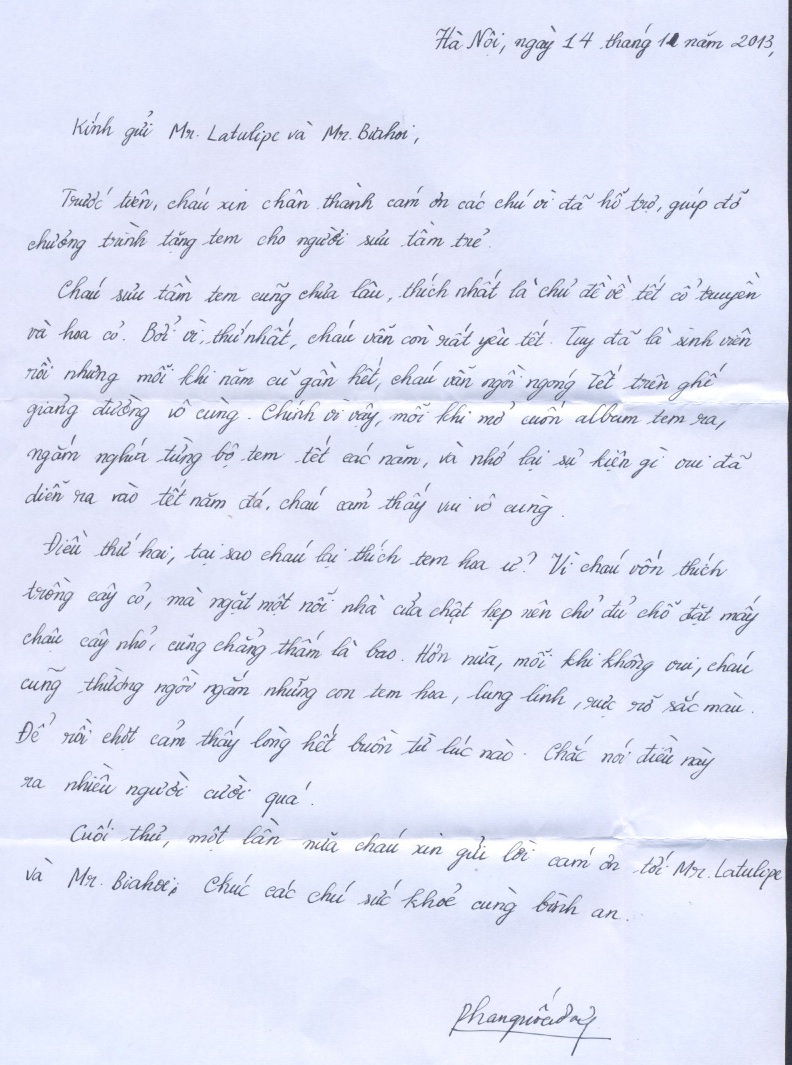 Hà Nội, ngày 14 tháng 11 năm 2013,
Kính gửi Mr. Latulipe và Mr. Biahoi,
Trước tiên, cháu xin chân thành cám ơn các chú vì đã hỗ trợ, giúp đỡ
chương trình tặng tem cho người sưu tầm trẻ.
Cháu sưu tầm tem cũng chưa lâu, thích nhất là chủ đề về tết cổ truyền
và hoa cỏ. Bởi vì, thứ nhất, cháu vẫn còn rất yêu tết. Tuy đã là sinh viên
rồi nhưng mỗi khi năm cũ gần hết, cháu vẫn ngồi ngóng Tết trên ghế
giảng đường vô cùng. Chính vì vậy, mỗi khi mở cuốn album tem ra,
ngắm nghía từng bộ tem tết các năm, và nhớ lại sự kiện gì vui đã
diễn ra vào tết năm đó, cháu cảm thấy vui vô cùng.
Điều thứ hai, tại sao cháu lại thích tem hoa ư? Vì cháu vốn thích
trồng cây cỏ, mà ngặt một nỗi nhà cửa chật hẹp nên chỉ đủ chỗ đặt mấy
chậu cây nhỏ, cũng chẳng thấm là bao. Hơn nữa, mỗi khi không vui, cháu
cũng thường ngồi ngắm những con tem hoa, lung linh, rực rỡ sắc màu.
Để rồi chợt cảm thấy lòng hết buồn từ lúc nào. Chắc nói điều này
ra nhiều người cười quá!
Cuối thư, một lần nữa cháu xin gửi lời cám ơn tới Mr. Latulipe
và Mr. Biahoi. Chúc các chú sức khoẻ cùng bình an.